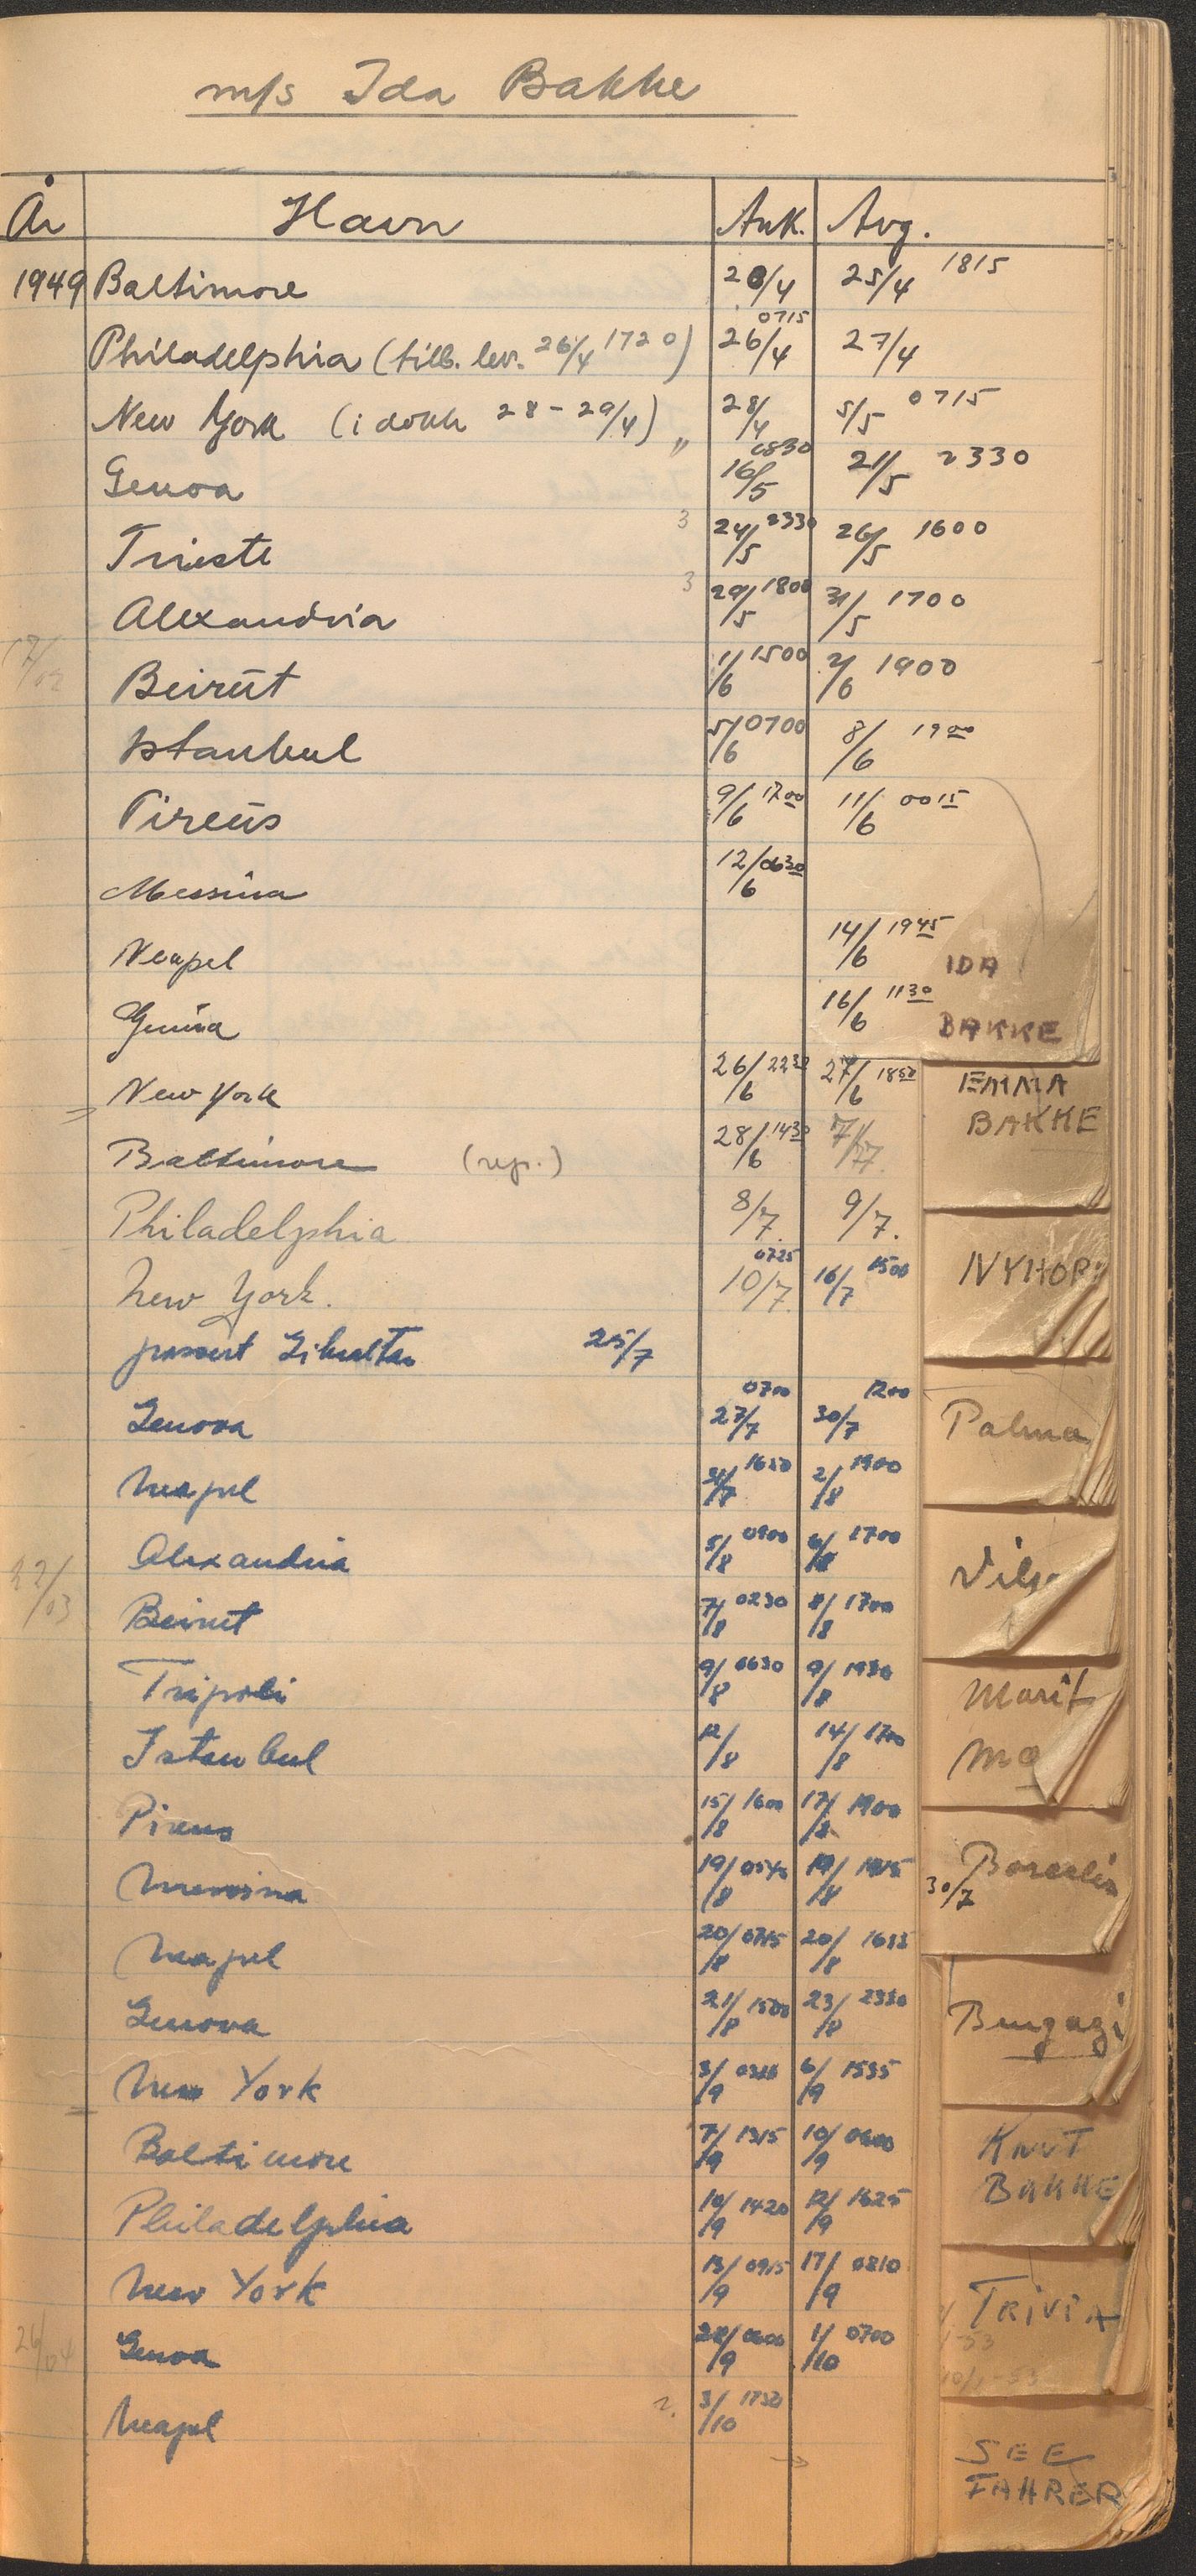 m/s Ida Bakke
År Havn Ank. Avg.
1949 Baltimore 20/4 25/4 1815
Philadelphia (tilb. lev. 26/4 1720) 26/4 0715 27/4
New York (i dokk 28-29/4) " 28/4 5/5 0715
Genoa 16/5 0830 21/5 2330
Trieste 3 24/5 2330 26/5 1600
Alexandria 3 29/5 1800 31/5 1700
17/03
Beirut 1/6 1500 2/6 1900
Istanbul 5/6 0700 8/6 1900
Pireus 9/6 1700 11/6 0015
Messina 12/6 0630
Neapel 14/6 1945
Genua 16/6 1130
New York 26/6 2230 27/6 1850
Baltimore (rep.) 28/6 1430 7/7
Philadelphia 8/7. 9/7.
New York. 10/7. 0725 16/7 1500
passert Gibraltar 25/7
Genova 27/7 0700 30/7 1200
Neapel 31/7 1630 2/8 1900
Alexandria 5/8 0900 6/8 1700
22/03
Beirut 7/8 0230 8/8 1700
Tripoli 9/8 0630 9/8 1930
Istanbul 12/8 14/8 1700
Pireus 15/8 1600 17/8 1900
Messina 19/8 0540 19/8
Neapel 20/8 0715 20/8 1635
Genova 21/8 1500 23/8 2330
New York 3/9 6/9 1535
Baltimore 7/9 1315 10/9 0600
Philadelphia 10/9 1420 12/9 1625
New York 13/9 0915 17/9 0810
26/04
Genoa 28/9 0600 1/10 0700
Neapel 3/10 1730
IDA
BAKKE
EMMA
BAKKE
NYHORN
Palma
Marit
Ma
30/7
Bengazi
KNUT
BAKKE
TRIVIA
10/1-53
SEE
FAHRER